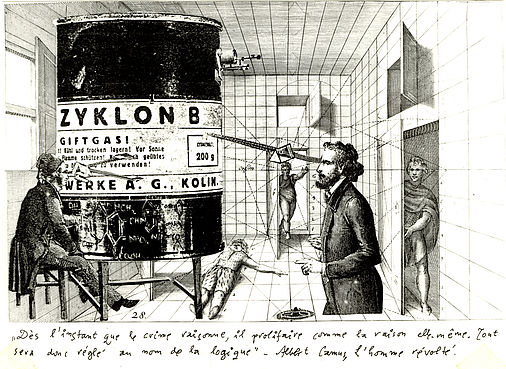 ZYKLON B
GIFTGAS!
Kühl und trocken lagern! Vor Sonne
Flamme schützen! geübtes
zu verwenden!
200 g
WERKE A. G., KOLIN.
28.
„Dès l'instant que le crime raisonne, il prolifaire comme la raison elle-même. Tout
sera donc réglé au nom de la logique" - Albert Camus, l'homme révolté.